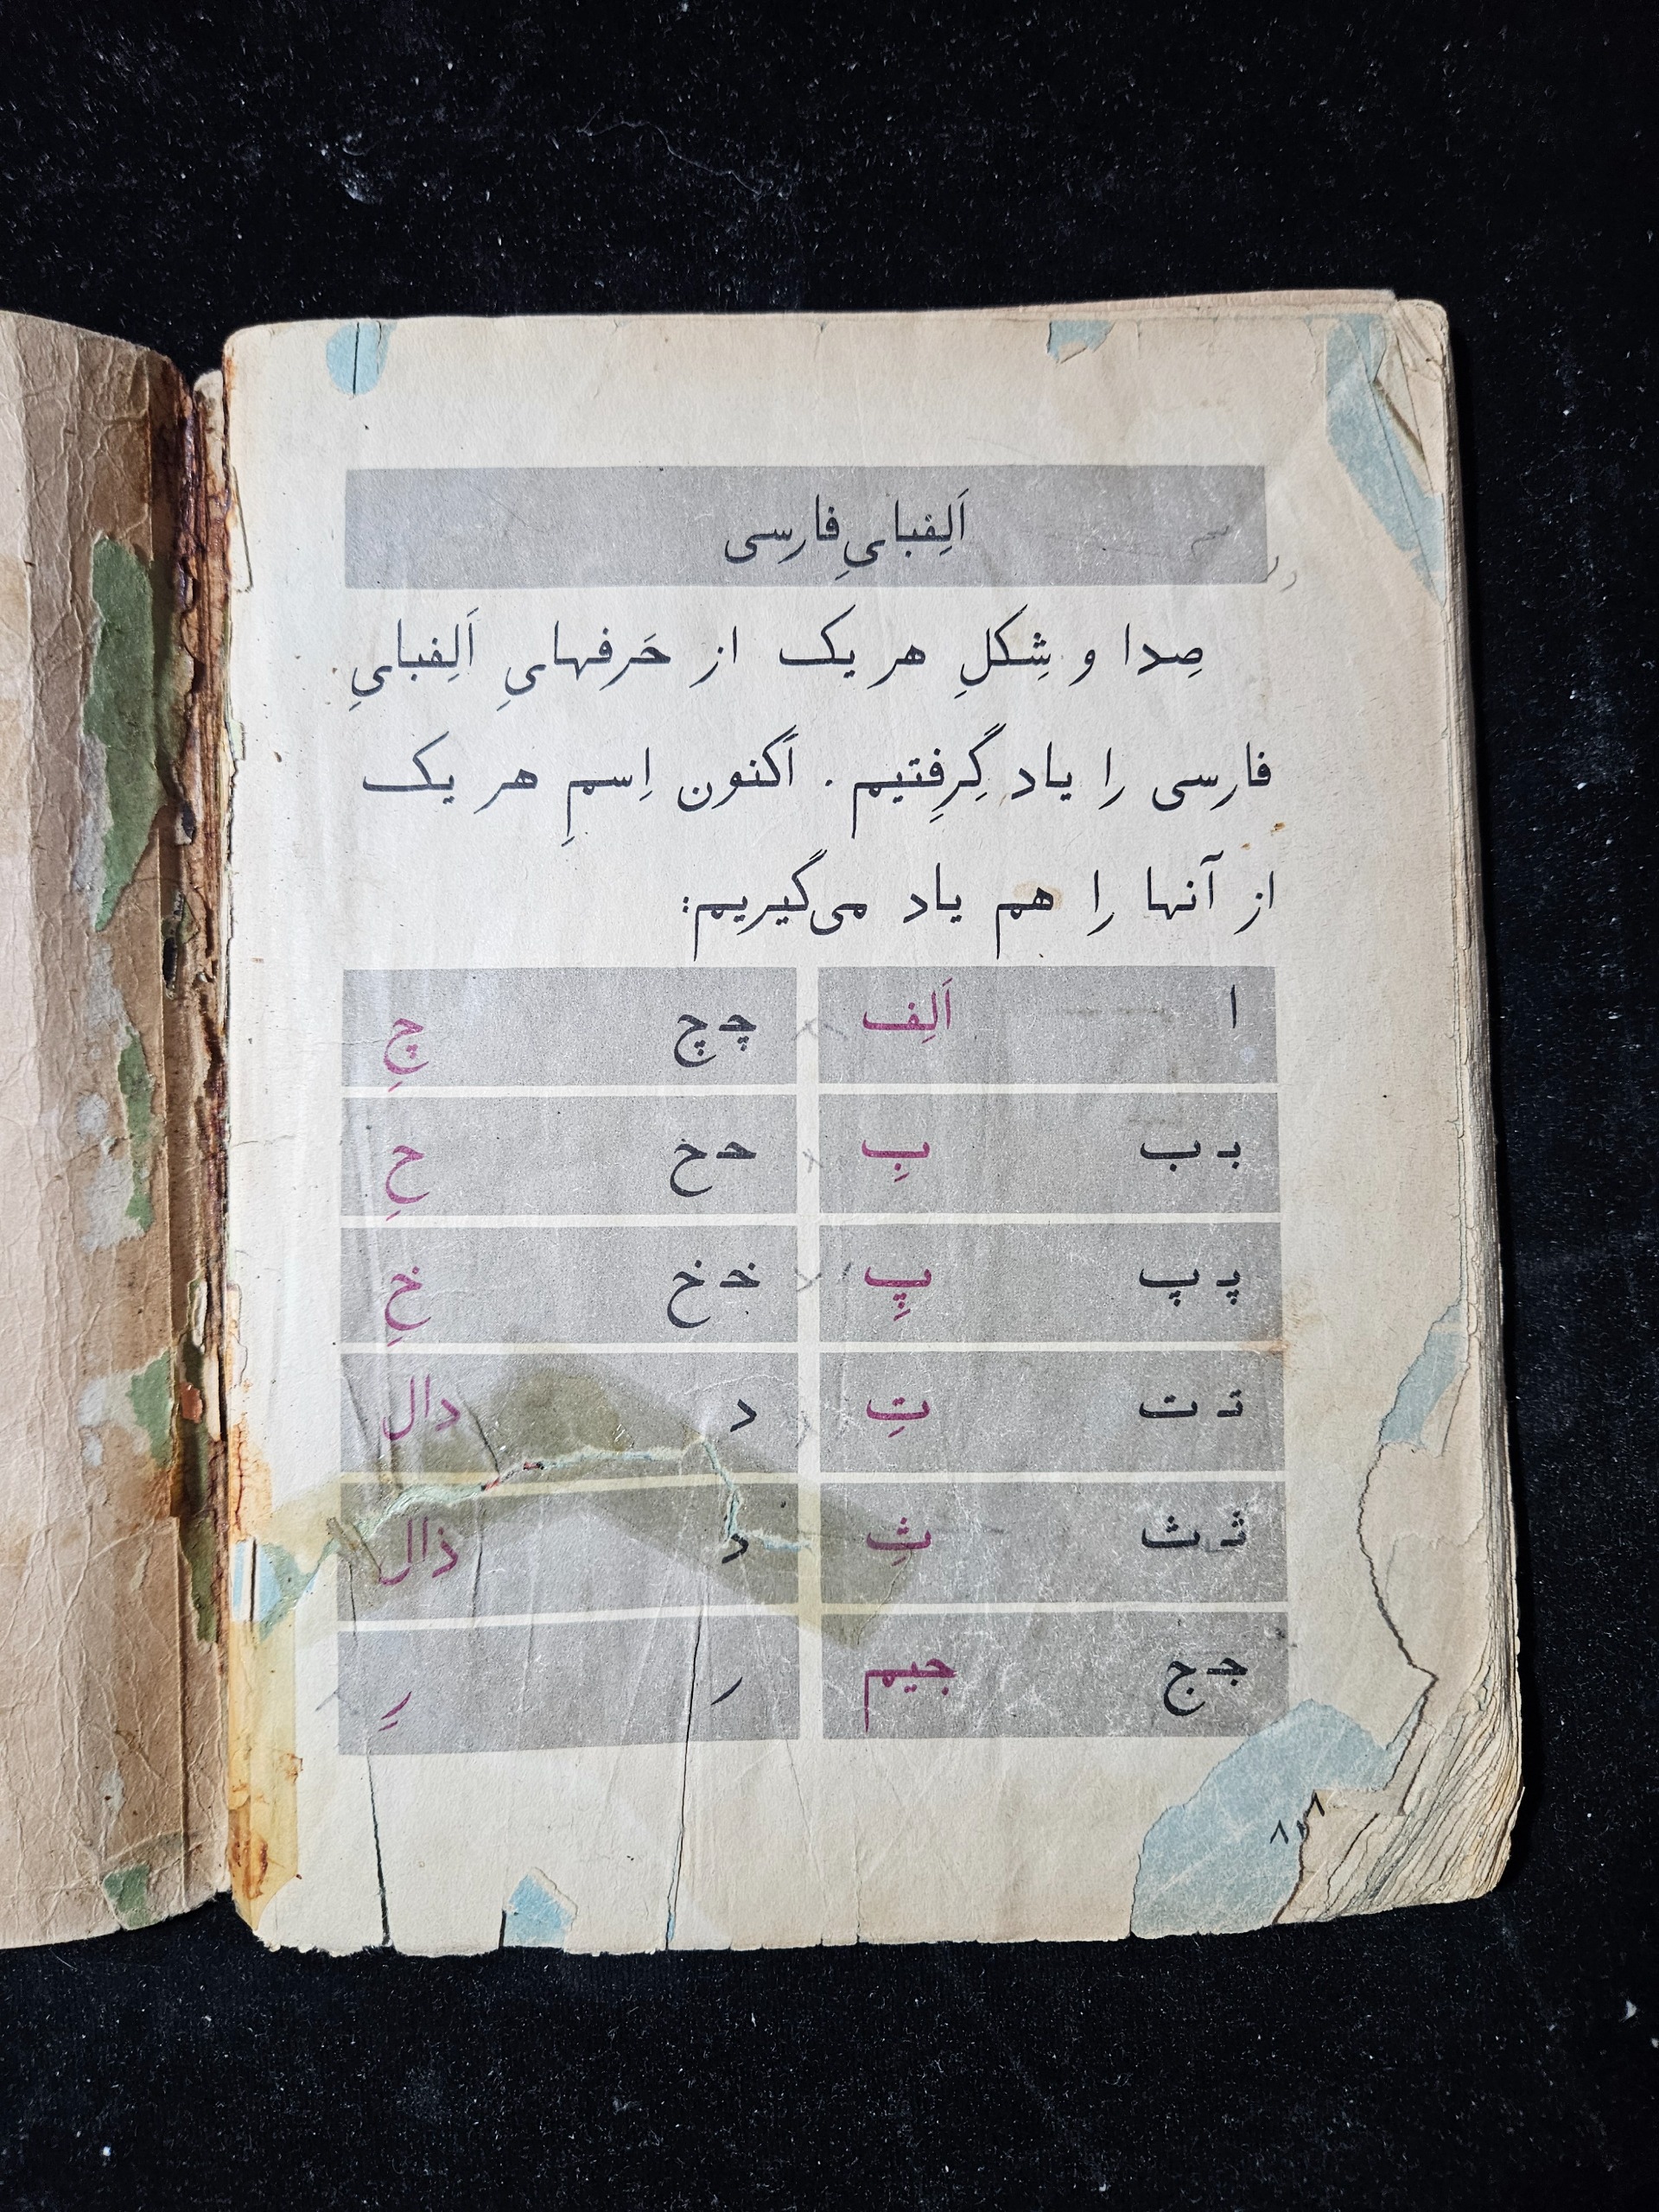 اَلِفبایِ فارسی
صِدا و شِکلِ هر یک از حَرفهایِ اَلِفبایِ
فارسی را یاد گِرِفتیم. اَکنون اِسمِ هر یک
از آنها را هم یاد می‌گیریم:
ا اَلِف
بـ ب بِ
پـ پ پِ
تـ ت تِ
ثـ ث ثِ
جـ ج جیم
چـ چ چِ
حـ ح حِ
خـ خ خِ
د دال
ذ ذال
ر رِ